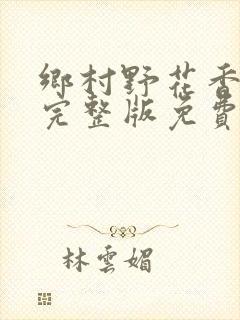 鄉村野花香
完整版免費
林雲媚